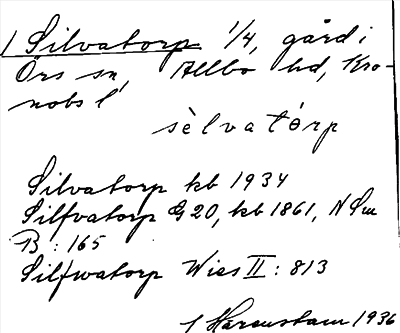 Silvatorp 1/4, gård i
Örs sn, Allbo hd, Kro-
nobs l
sèlvatórp
Silvatorp kb 1934
Silfvatorp G 20, kb 1861, N Sm
B : 165
Silfwatorp Wies II : 813
Harenstam 1936